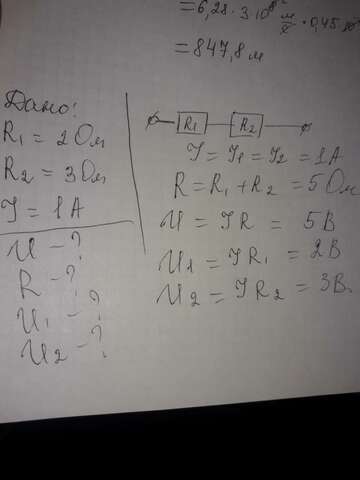 = 6,28 · 3 · 10⁸ м/с · 0,45 · 10
= 847,8 м
Дано:
R₁ = 2 Ом
R₂ = 3 Ом
J = 1 А
U - ?
R - ?
U₁ - ?
U₂ - ?
R₁ R₂
J = J₁ = J₂ = 1А
R = R₁ + R₂ = 5 Ом
U = JR = 5В
U₁ = JR₁ = 2В
U₂ = JR₂ = 3В.